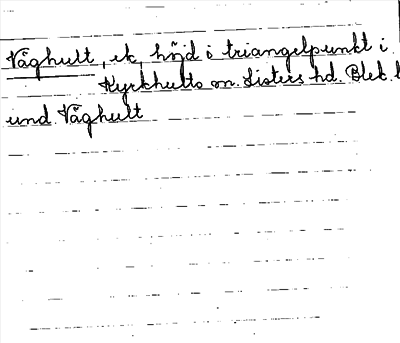 Våghult, ek, höjd o triangelpunkt i
Kyrkhults sn. Listers hd. Blek. l
und. Våghult